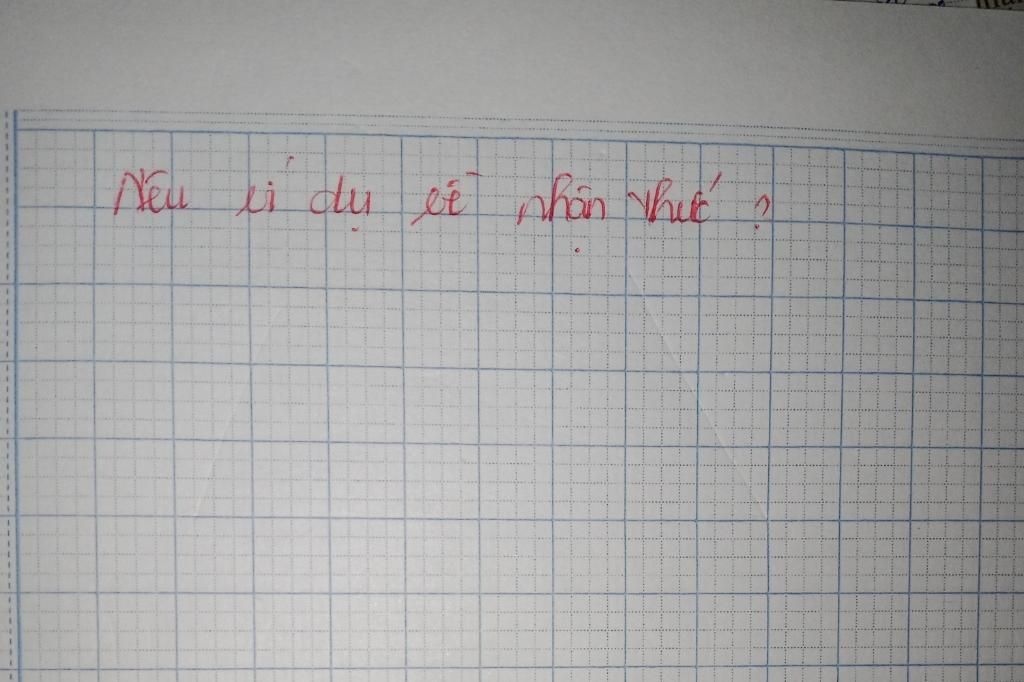 Nêu ví dụ về nhận thức ?